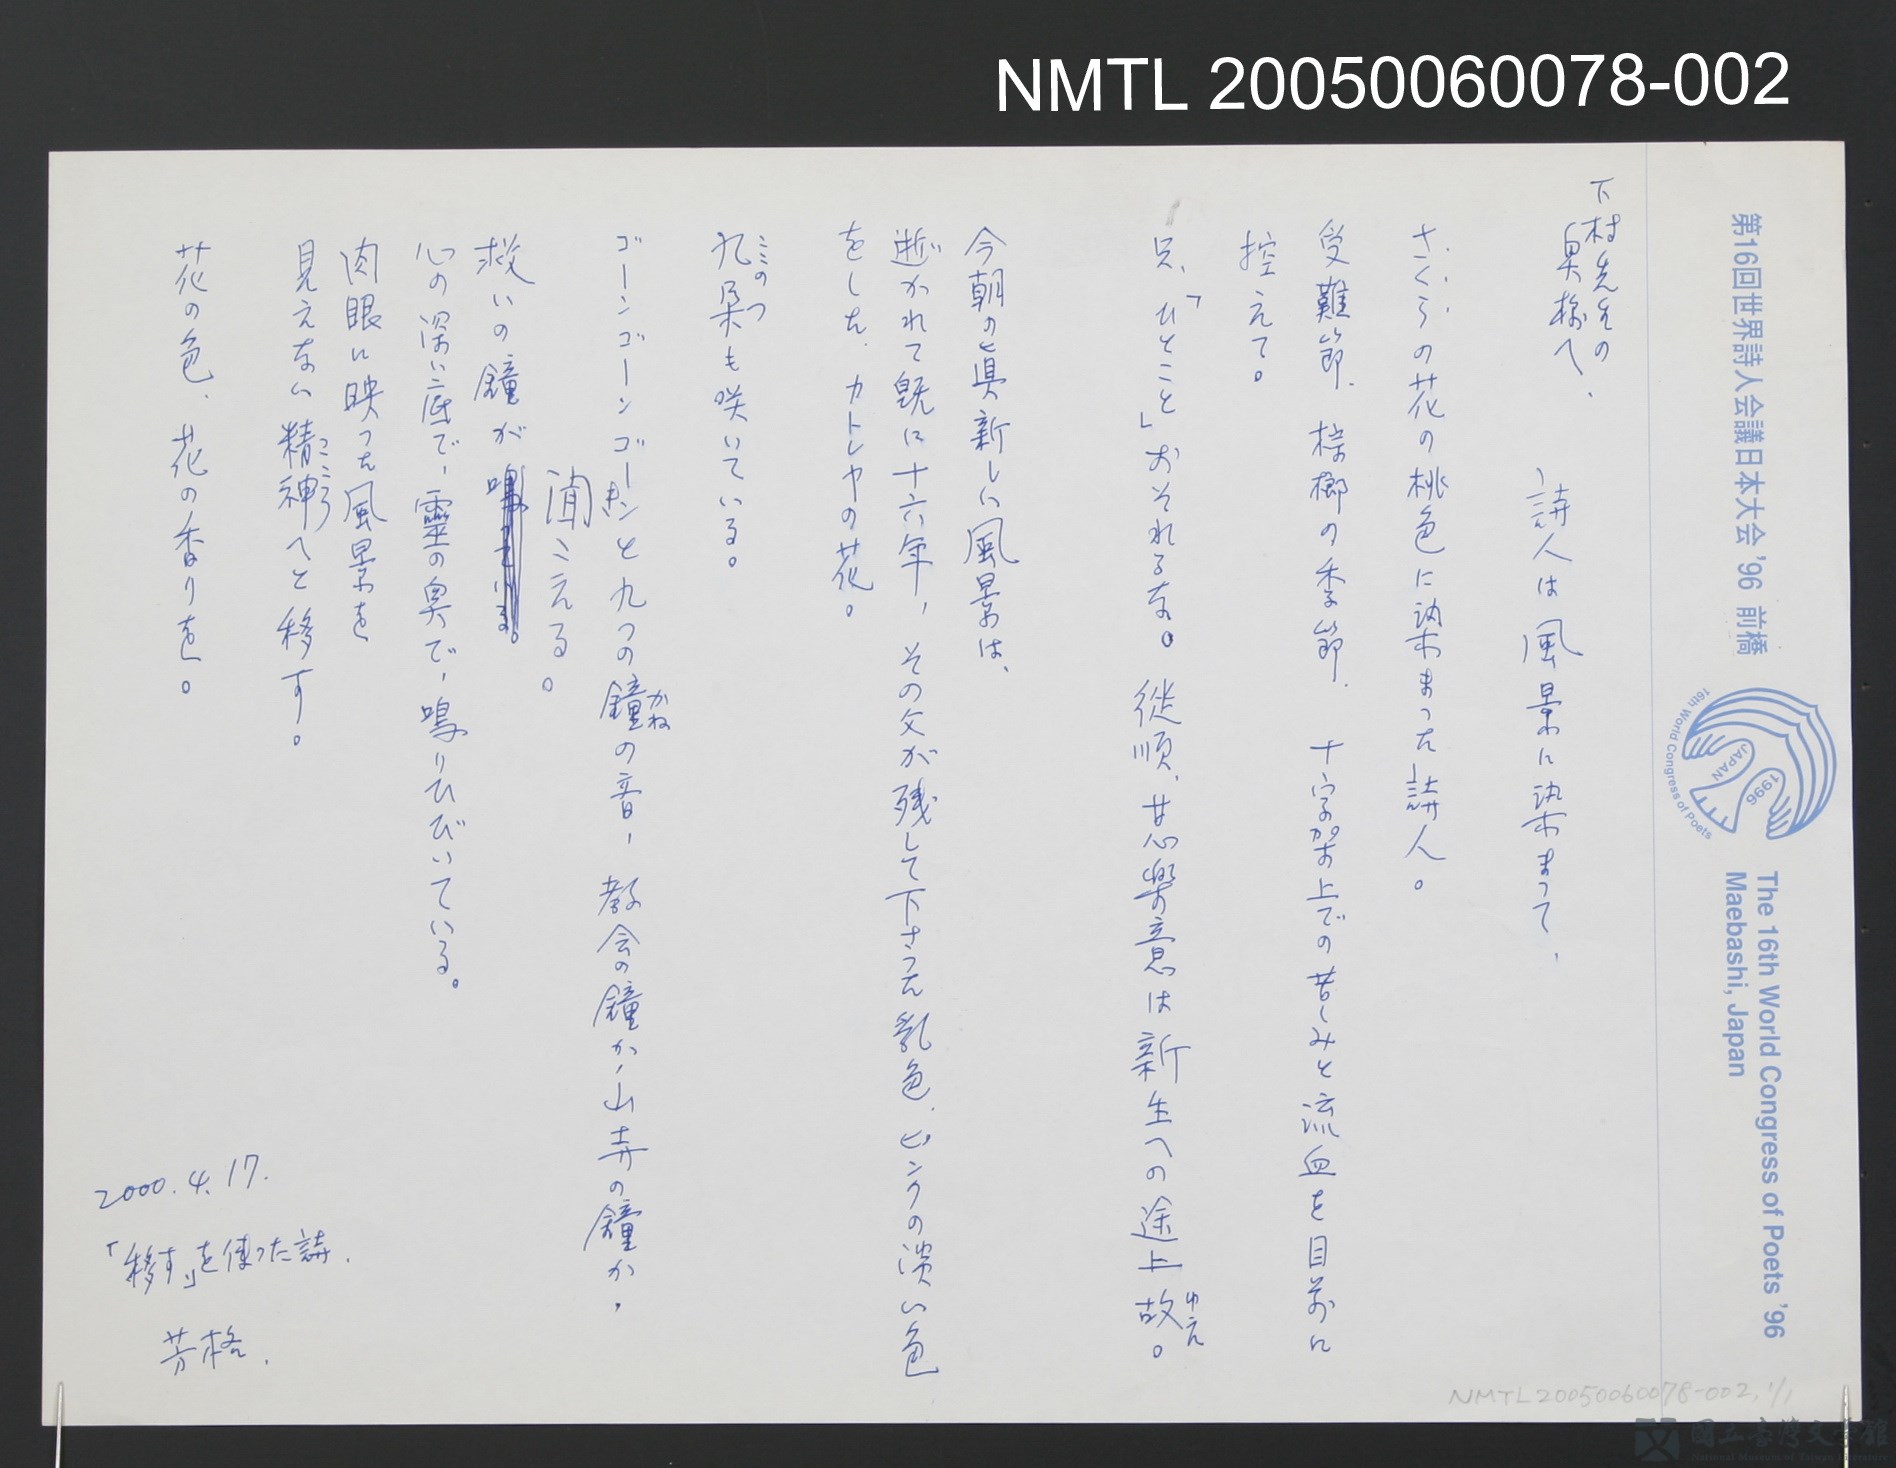 NMTL 20050060078-002
第16回世界詩人会議日本大会 '96 前橋
16th World Congress of Poets
JAPAN
1996
The 16th World Congress of Poets '96
Maebashi, Japan
下村先生の
奥様へ、
詩人は風景に染まって、
さくらの花の桃色に染まった詩人。
受難節、棕櫚の季節、十字架上での苦しみと流血を目前に
控えて。
只、「ひとこと」おそれるな。従順、甘心樂意は新生への途上故。
ゆえ
今朝の真新しい風景は、
逝かれて既に十六年、その父が残して下さった乳色、ピンクの淡い色
をした、カトレヤの花。
九朶も咲いている。
ここのつ
ゴーンゴーンゴーンと九つの鐘の音、教会の鐘か、山寺の鐘か、
かね
聞こえる。
救いの鐘が鳴っている。
心の深い底で、靈の奥で、鳴りひびいている。
肉眼に映った風景を
見えない精神へと移す。
こころ
花の色、花の香りを。
2000.4.17.
「移す」を使った詩.
芳格.
NMTL20050060078-002, 1/1
國立臺灣文學館
National Museum of Taiwan Literature